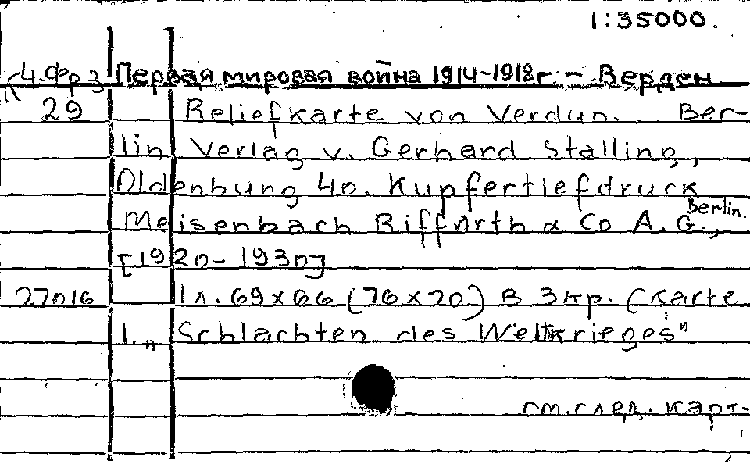 1:35000.
4.Фрз Первая мировая война 1914-1918г. - Верден
29 Reliefkarte von Verdun. Ber-
lin Verlag v. Gerhard Stalling,
Oldenburg 4o. Kupfertiefdruck
Meisenbach Riffarth & Co A.G., Berlin.
[1920-1930]
27016 1л. 69x66 (70x70) в 3 кр. (Karte
1. „Schlachten des Weltkrieges"
см. след. карт.